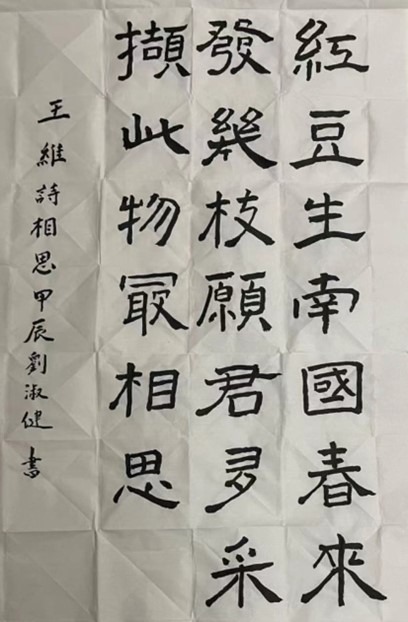 紅豆生南國春來
發幾枝願君多采
擷此物冣相思
王維詩相思甲辰劉淑健書